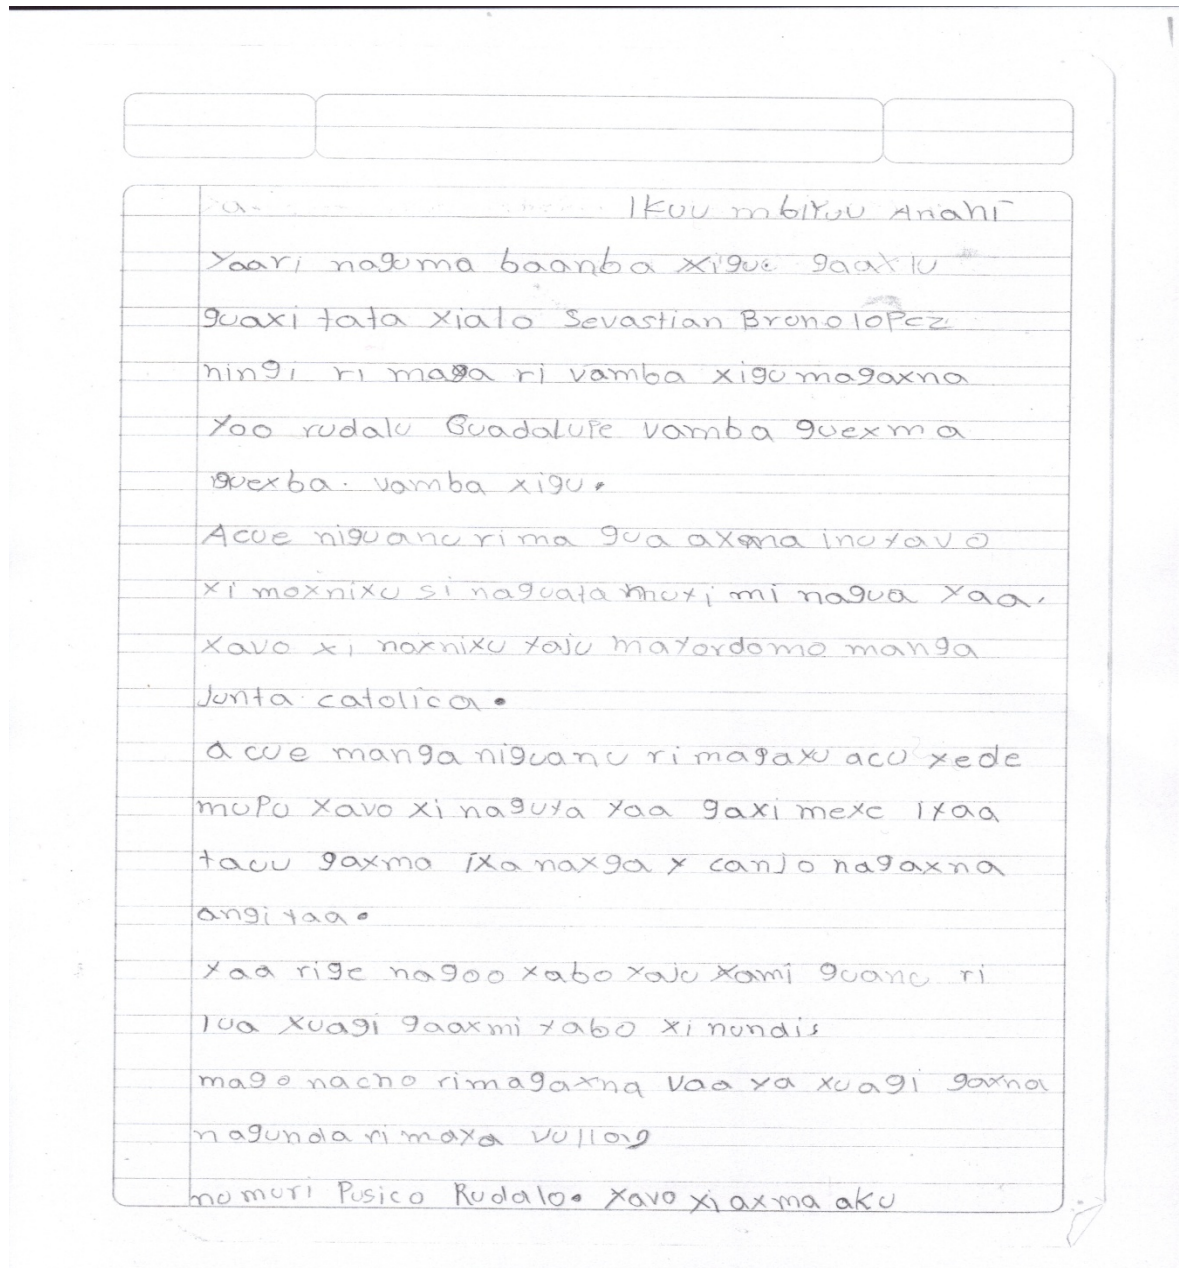 Ikuu mbiyuu Anahi
Yaari naguma baanba xigue gaaxlu
guaxi tata xialo Sevastian Bruno lopez
ningi ri maga ri vamba xigu magaxna
Yoo rudalu Guadalupe vamba guexma
guexba. vamba xigu.
Acue niguanu rima gua axma inuxavo
xi moxnixu si naguata muxi mi nagua xaa.
Xavo xi noxnixu xaju mayordomo manga
Junta catolica.
acue manga niguanu ri magaxu acu xede
mupu xavo xi naguya xaa gaxi mexe ixaa
tacu gaxma ixa naxga x canjo nagaxna
angi taa.
xaa rige nagoo xabo xaju xami guanu ri
lua xuagi gaaxmi xabo xi nundis
mago nacho rimagaxna vaa ya xuagi gaxna
nagunda ri maxa
numuri Pusico Rudalo. Xavo xi axma aku